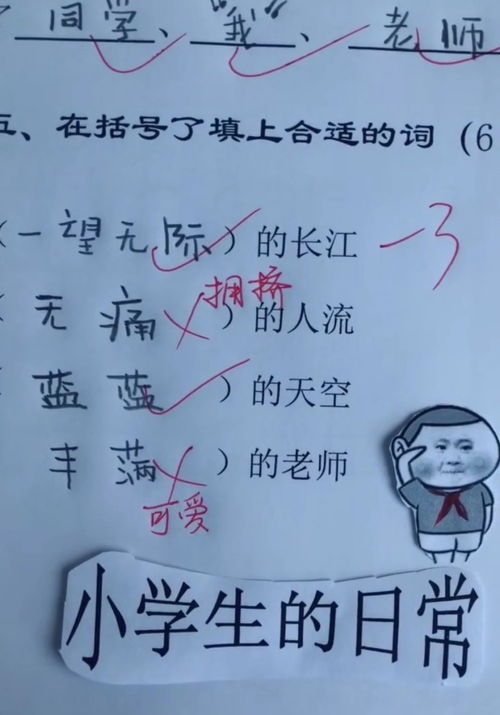 同学、“我”、老师
五、在括号了填上合适的词（6
（一望无际）的长江 -3
拥挤
（无痛）的人流
（蓝蓝）的天空
丰满）的老师
可爱
小学生的日常